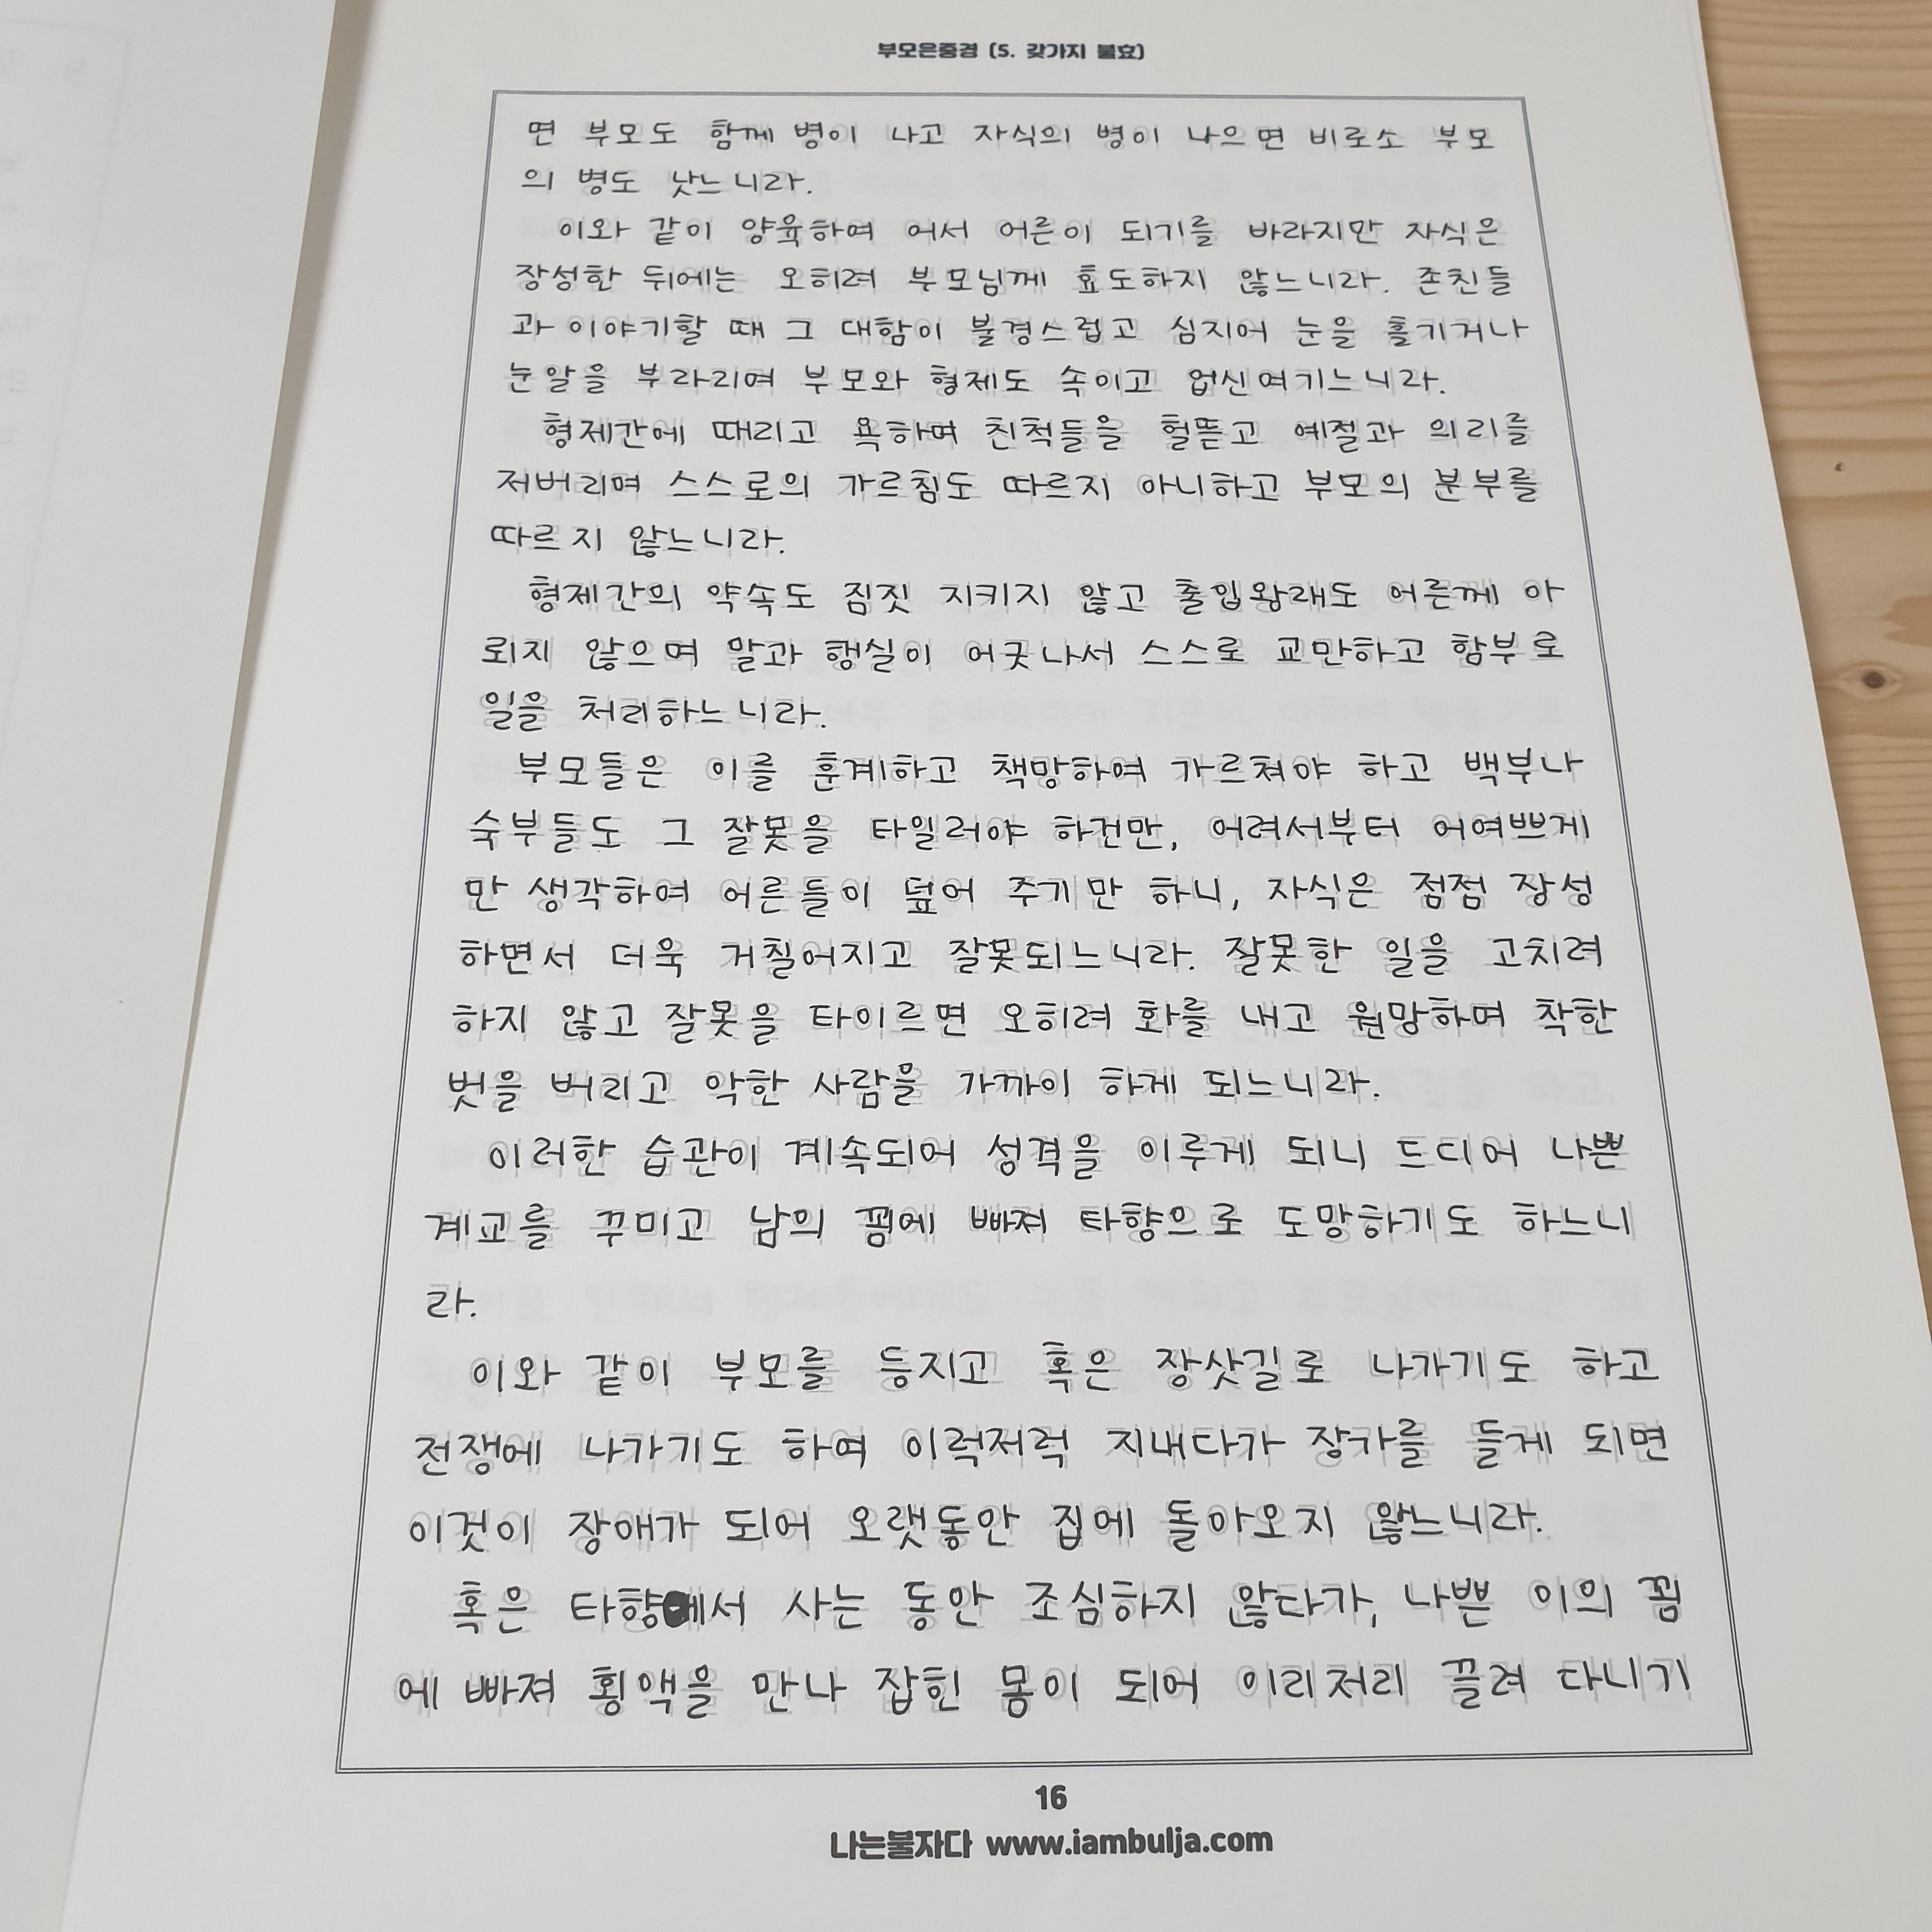 부모은중경 (5. 갖가지 불효)
면 부모도 함께 병이 나고 자식의 병이 나으면 비로소 부모
의 병도 낫느니라.
이와 같이 양육하여 어서 어른이 되기를 바라지만 자식은
장성한 뒤에는 오히려 부모님께 효도하지 않느니라. 존친들
과 이야기할 때 그 대함이 불경스럽고 심지어 눈을 흘기거나
눈알을 부라리며 부모와 형제도 속이고 업신여기느니라.
형제간에 때리고 욕하며 친척들을 헐뜯고 예절과 의리를
저버리며 스스로의 가르침도 따르지 아니하고 부모의 분부를
따르지 않느니라.
형제간의 약속도 짐짓 지키지 않고 출입왕래도 어른께 아
뢰지 않으며 말과 행실이 어긋나서 스스로 교만하고 함부로
일을 처리하느니라.
부모들은 이를 훈계하고 책망하여 가르쳐야 하고 백부나
숙부들도 그 잘못을 타일러야 하건만, 어려서부터 어여쁘게
만 생각하여 어른들이 덮어 주기만 하니, 자식은 점점 장성
하면서 더욱 거칠어지고 잘못되느니라. 잘못한 일을 고치려
하지 않고 잘못을 타이르면 오히려 화를 내고 원망하며 착한
벗을 버리고 악한 사람을 가까이 하게 되느니라.
이러한 습관이 계속되어 성격을 이루게 되니 드디어 나쁜
계교를 꾸미고 남의 꾐에 빠져 타향으로 도망하기도 하느니
라.
이와 같이 부모를 등지고 혹은 장삿길로 나가기도 하고
전쟁에 나가기도 하여 이럭저럭 지내다가 장가를 들게 되면
이것이 장애가 되어 오랫동안 집에 돌아오지 않느니라.
혹은 타향에서 사는 동안 조심하지 않다가, 나쁜 이의 꾐
에 빠져 횡액을 만나 잡힌 몸이 되어 이리저리 끌려 다니기
16
나는불자다 www.iambulja.com